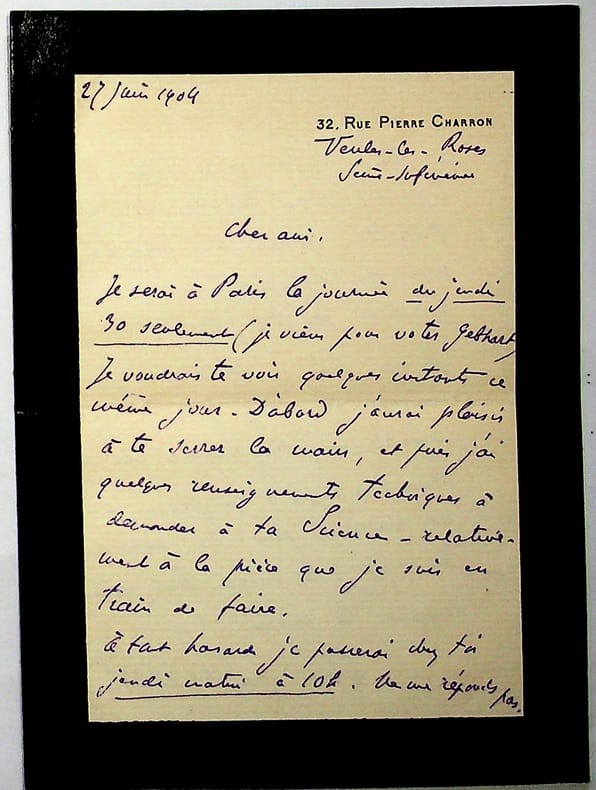 27 juin 1904
32, RUE PIERRE CHARRON
Veules-les-Roses
Seine-Inférieure
Cher ami,
Je serai à Paris la journée du jeudi
30 seulement (je viens pour voter Gebhart)
Je voudrais te voir quelques instants ce
même jour - D'abord j'aurai plaisir
à te serrer la main, et puis j'ai
quelques renseignements techniques à
demander à ta Science - relative-
ment à la pièce que je suis en
train de faire.
à tout hasard je passerai chez toi
jeudi matin à 10h. Ne me réponds pas.